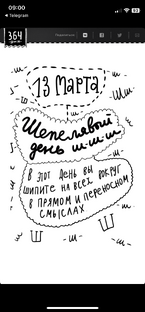 09:00
Telegram
364
13 МАРТА
Шепелявый
день ш-ш-ш
В ЭТОТ ДЕНЬ ВЫ
ШИПИТЕ НА ВСЕХ ВОКРУГ
В ПРЯМОМ И ПЕРЕНОСНОМ
СМЫСЛАХ
Ш
-Ш-
Ш